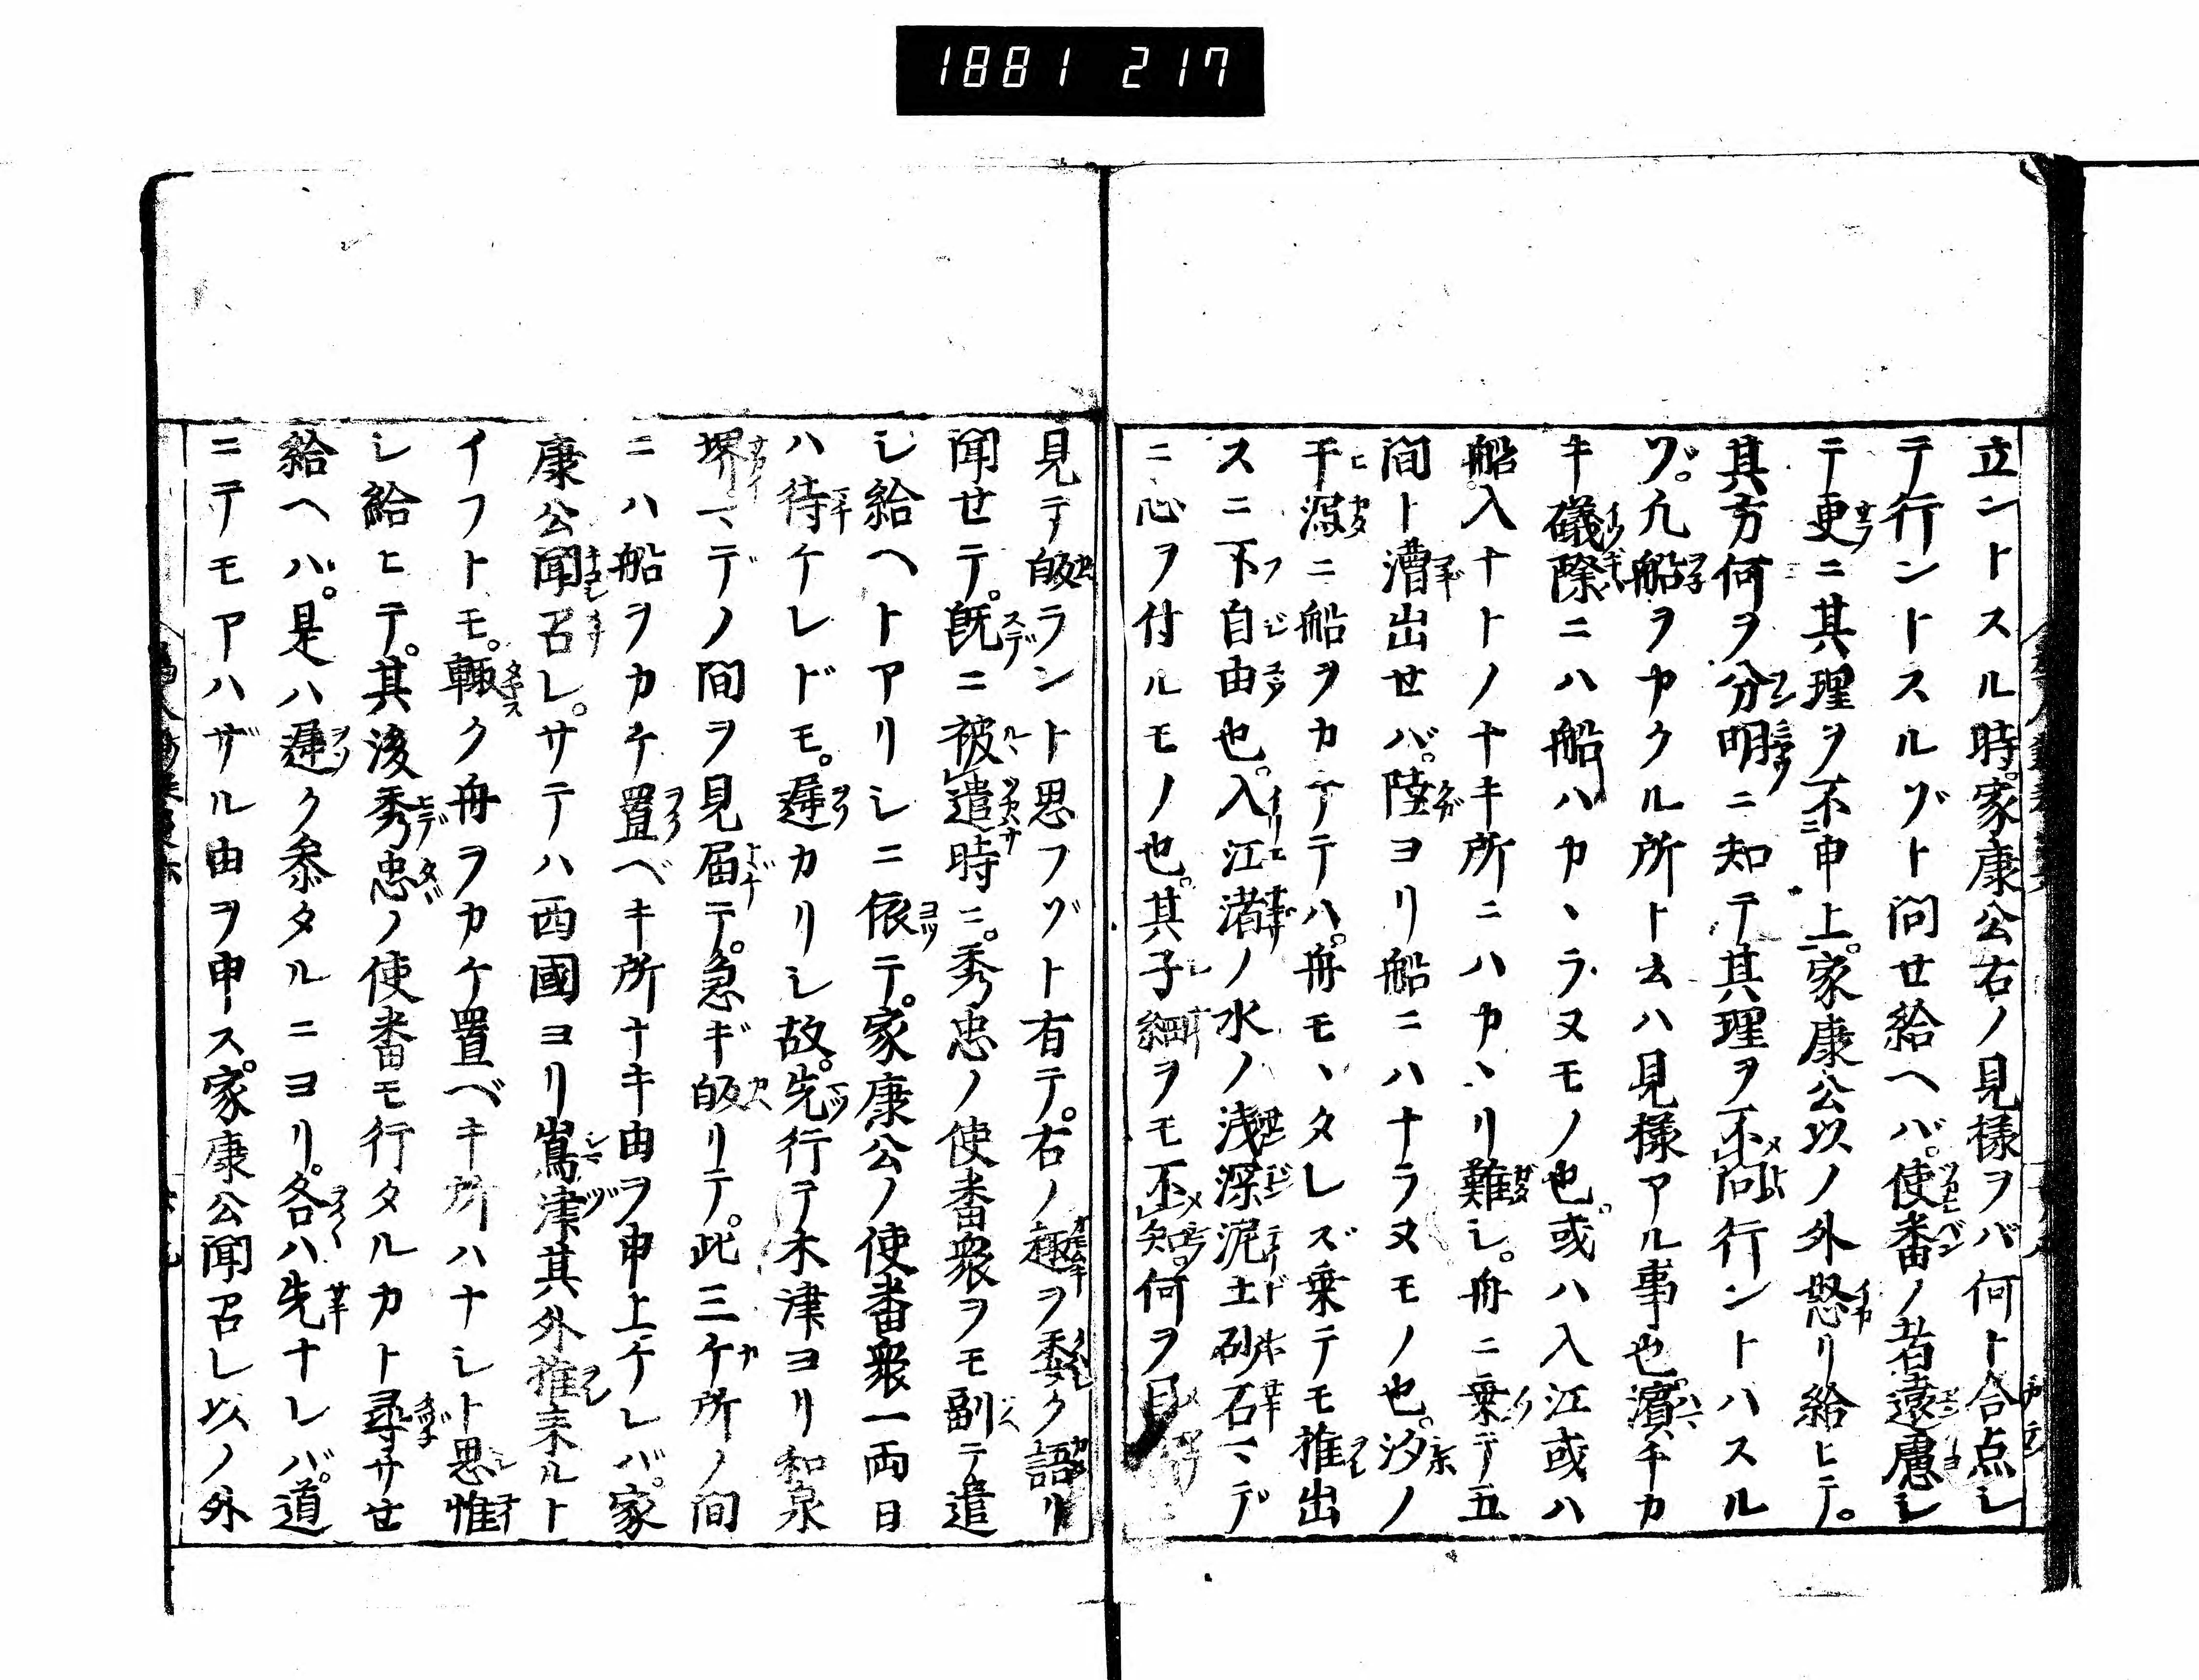 1881 217
立ントスル時。家康公右ノ見様ヲバ何ト合点シ
テ行ントスルゾト問せ給ヘバ。使番ノ者遠慮シ
テ更ニ其理ヲ不申上。家康公以ノ外怒リ給ヒテ。
其方何ヲ分明ニ知テ其理ヲ不問行ントハスル
ゾ。凡船ヲカクル所ト云ハ見様アル事也。濱チカ
キ礒際ニハ船ハカヽラヌモノ也。或ハ入江或ハ
船入ナトノナキ所ニハカヽリ難シ。舟ニ乗テ五
間ト漕出せバ。陸ヨリ船ニハナラヌモノ也。汐ノ
干瀉ニ船ヲカケテハ。舟モヽタレズ乗テモ推出
スニ不自由也。入江渚ノ水ノ浅深泥土砂石マデ
ニ心ヲ付ルモノ也。其子細ヲモ不知。何ヲ
見テ皈ラント思フゾト有テ。右ノ趣ヲ委ク語リ
聞せテ。既ニ被遣時ニ。秀忠ノ使番衆ヲモ副テ遣
シ給ヘトアリシニ依テ。家康公ノ使番衆一両日
ハ待ケレドモ。遅カリシ故。先行テ木津ヨリ和泉
堺マデノ間ヲ見届テ。急ギ皈リテ。此三ケ所ノ間
ニハ船ヲカケ置ベキ所ナキ由ヲ申上ケレバ。家
康公聞召レ。サテハ西國ヨリ嶌津其外推来ルト
イフトモ。輙ク舟ヲカケ置ベキ所ハナシト思惟
シ給ヒテ。其後秀忠ノ使番モ行タルカト尋サせ
給ヘバ。是ハ遅ク参タルニヨリ。各ハ先ナレバ。道
ニテモアハザル由ヲ申ス。家康公聞召レ以ノ外